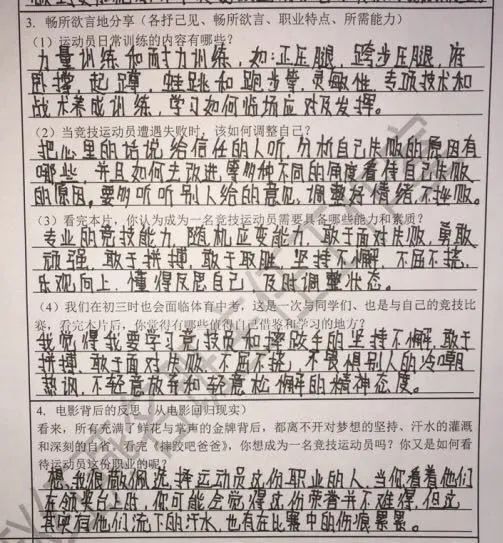 3. 畅所欲言地分享（各抒己见、畅所欲言、职业特点、所需能力）
（1）运动员日常训练的内容有哪些？
力量训练和耐力训练，如：正压腿，跨步压腿，俯
卧撑，起蹲，蛙跳和跑步等，灵敏性，专项技术和
战术养成训练，学习如何临场应对及发挥。
（2）当竞技运动员遭遇失败时，该如何调整自己？
把心里的话说给信任的人听，分析自己失败的原因有
哪些，并且如何去改进，等多种不同的角度看待自己失败
的原因。要多听听别人给的意见，调整好情绪，不挫败。
（3）看完本片，你认为成为一名竞技运动员需要具备哪些能力和素质？
专业的竞技能力，随机应变能力，敢于面对失败，勇敢
顽强，敢于拼搏，敢于取胜，坚持不懈，不屈不挠，
乐观向上，懂得反思自己，及时调整状态。
（4）我们在初三时也会面临体育中考，这是一次与同学们、也是与自己的竞技比
赛，看完本片后，你觉得有哪些值得自己借鉴和学习的地方？
我觉得我要学习竞技员和摔跤手的坚持不懈，敢于
拼搏，敢于面对失败，不屈不挠，不畏惧别人的冷嘲
热讽，不轻意放弃和轻意松懈的精神态度。
4. 电影背后的反思（从电影回归现实）
看来，所有充满了鲜花与掌声的金牌背后，都离不开对梦想的坚持、汗水的灌溉
和深刻的自省，看完《摔跤吧爸爸》，你想成为一名竞技运动员吗？你又是如何看
待运动员这份职业的呢？
想，我很敬佩选择运动员这份职业的人，当你看着他们
在领奖台上时，你可能会觉得这份荣誉并不难得，但这
其中有他们流下的汗水，也有在比赛中的伤痕累累。